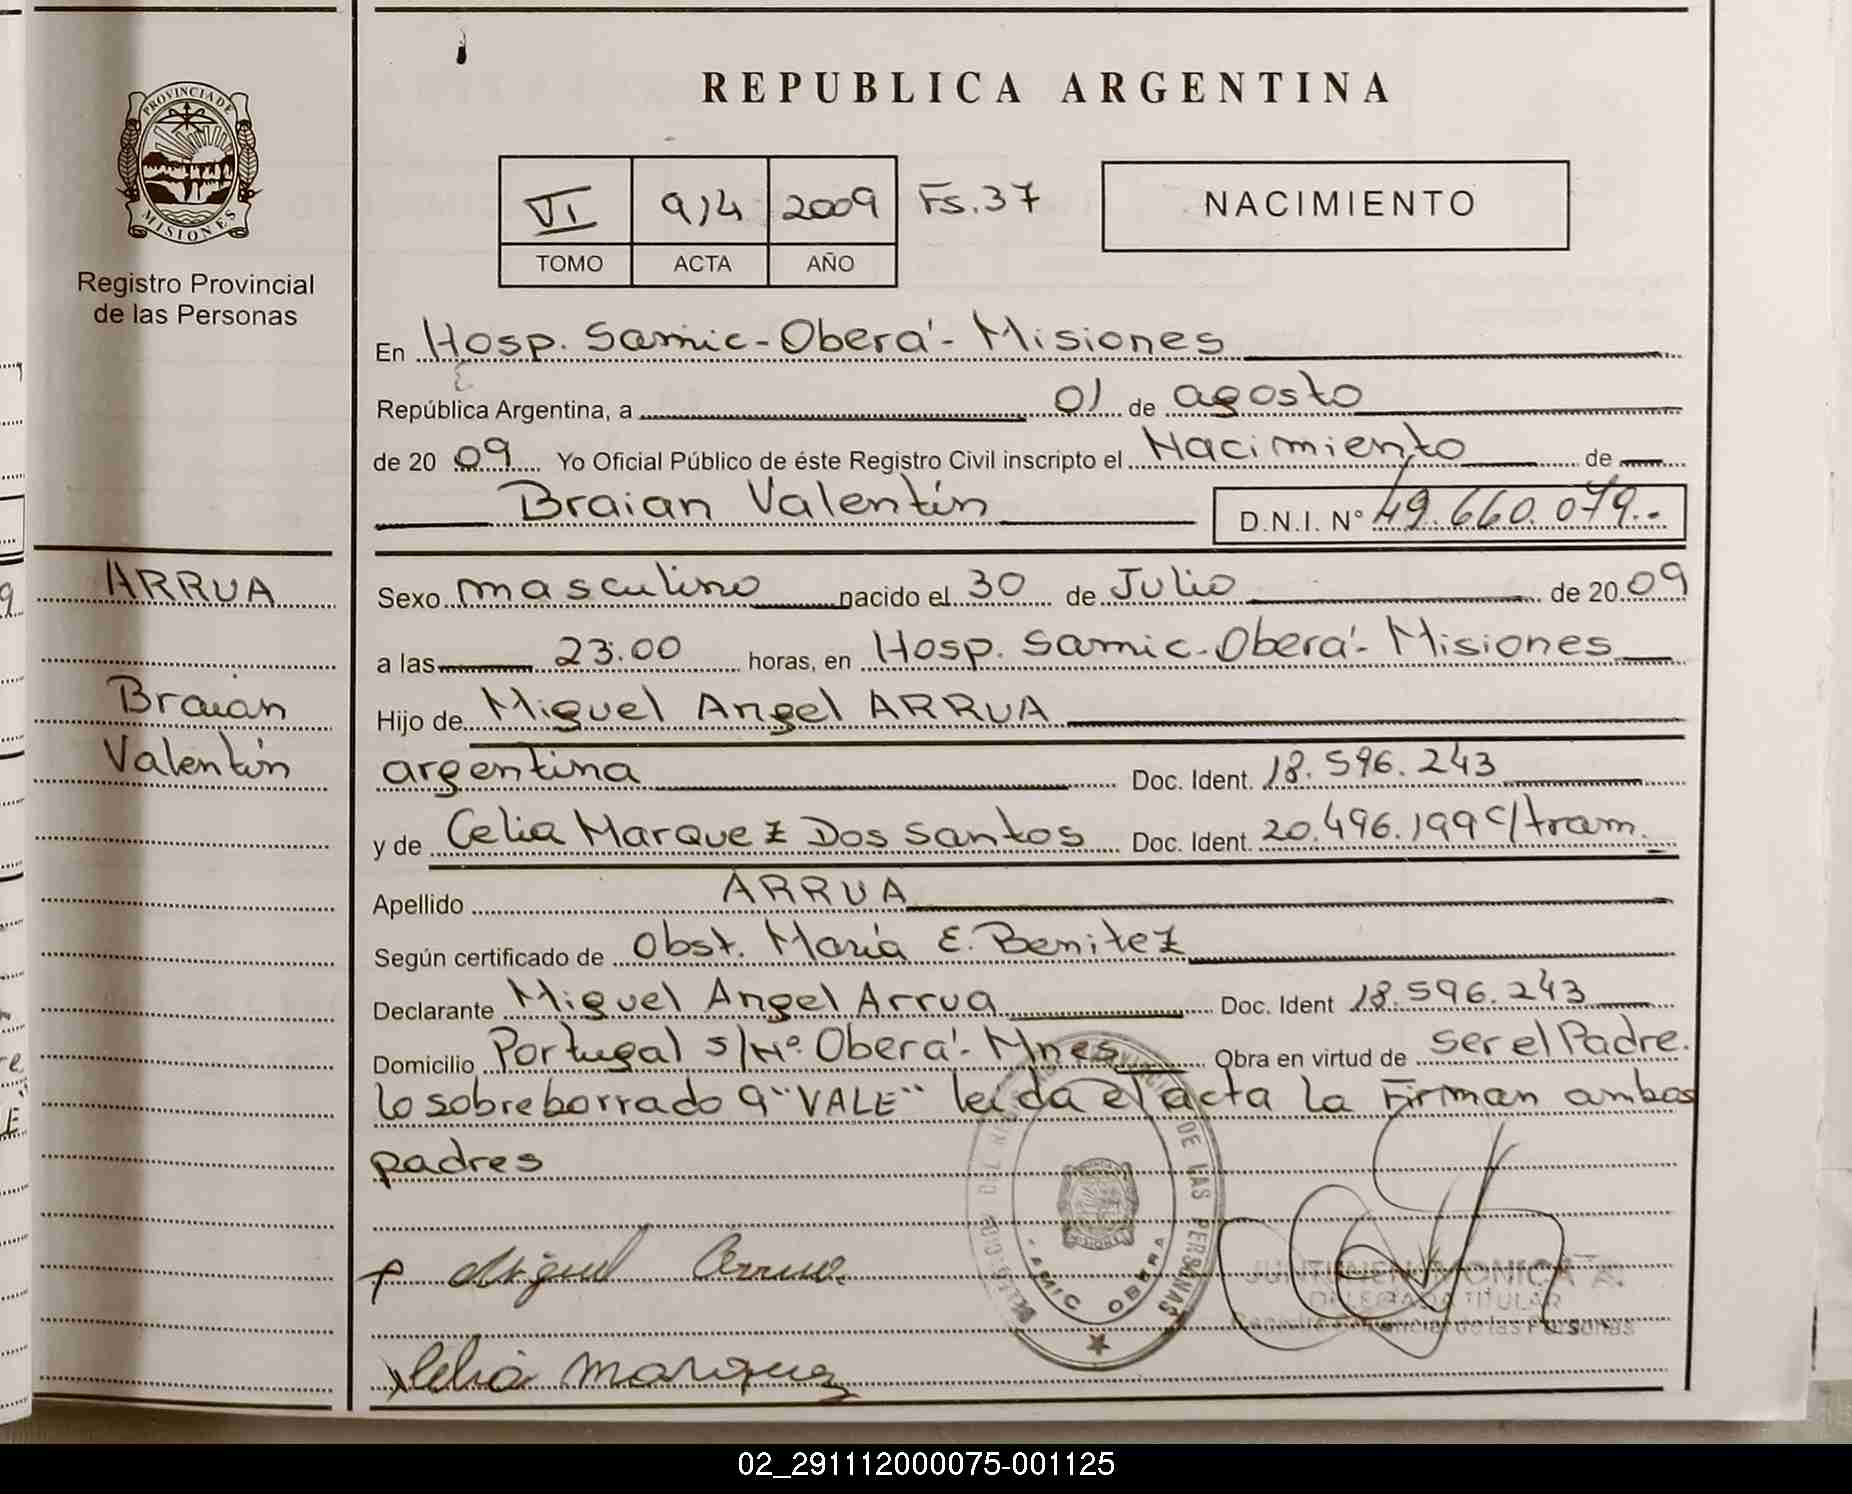 REPUBLICA ARGENTINA
PROVINCIA DE
MISIONES
Registro Provincial
de las Personas
VI 914 2009 Fs.37
TOMO ACTA AÑO
NACIMIENTO
En Hosp. Samic-Oberá-Misiones
República Argentina, a 01 de agosto
de 20 09 Yo Oficial Público de éste Registro Civil inscripto el Nacimiento de
Braian Valentín
D.N.I. N° 49.660.079.-
ARRUA
Braian
Valentín
Sexo masculino nacido el 30 de Julio de 20 09
a las 23:00 horas, en Hosp. Samic-Oberá-Misiones
Hijo de Miguel Angel ARRUA
argentina Doc. Ident. 18.596.243
y de Celia Marquez Dos Santos Doc. Ident. 20.496.199 c/tram.
Apellido ARRUA
Según certificado de Obst. María E. Benitez
Declarante Miguel Angel Arrua Doc. Ident 18.596.243
Domicilio Portugal s/Nº Oberá-Mnes Obra en virtud de ser el Padre.
lo sobreborrado 9 "VALE" leída el acta la Firman ambos
padres
Miguel Arrua
Celia Marquez
DE LAS PERSONAS
SAMIC OBERA
MONICA
DELEGADA TITULAR
Registro Provincial de las Personas
02_291112000075-001125